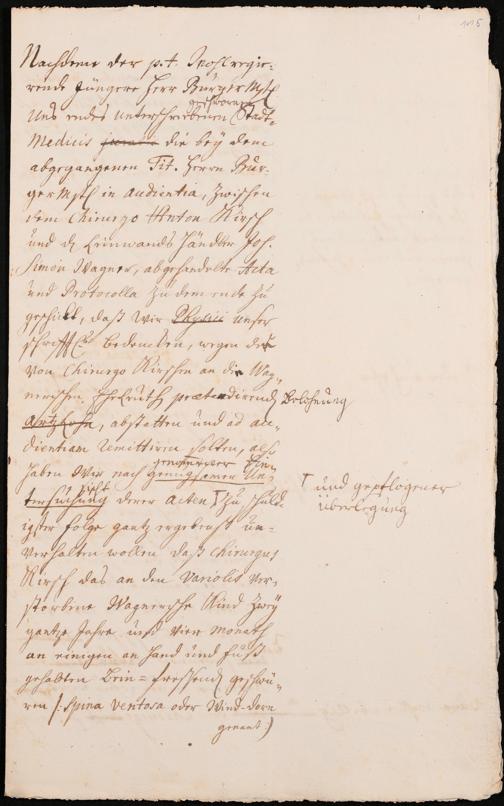 Nachdeme der p.t. Wohlregie-
rende jüngere Herr BurgerMstr
Uns endes unterschriebenen Stadt-
geschworner
Medicis die bey dem
abgegangenen Tit. Herrn Bur-
gerMstr in audientia, zwischen
dem Chirurgo Anton Kirsch
und dh Leinwands händler Joh.
Simon Wagner, abgehandelte Acta
und Protocolla zu dem ende zu
geschickt, daß wir Physici unser
schrifftl. bedencken, wegen der
von Chirurgo Kirschen an die Wag-
nerischen EheLeuth praetendirend Belohnung
abstatten und ad au-
dientiam remittiren solten, als
haben Wir nach genugsamer Ein-
sicht
Untersuchung derer Acten zu schuld-
und gepflogener
überlegung
igster folge gantz ergebenst un-
verhalten wollen daß Chirurgus
Kirsch das an den Variolis ver-
storbene Wagnersche Kind zwey
gantze Jahre und vier monath
an einigen an hand und fuß
gehabten bein-fressend geschwü-
ren /: Spina ventosa oder Wind-dorn
genant )